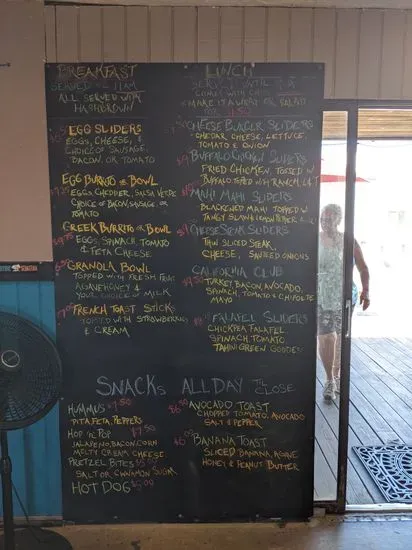 BREAKFAST
SERVED 11AM
ALL SERVED WITH
HASHBROWN
EGG SLIDERS
EGGS, CHEESE, &
CHOICE OF SAUSAGE,
BACON, OR TOMATO
EGG BURRITO OR BOWL
EGGS, CHEDDER, SALSA VERDE
CHOICE OF BACON, SAUSAGE, OR
TOMATO
GREEK BURRITO OR BOWL
EGGS, SPINACH, TOMATO
& FETA CHEESE
GRANOLA BOWL
TOPPED WITH FRESH FRUIT
AGAVE HONEY &
YOUR CHOICE OF MILK
FRENCH TOAST STICKS
TOPPED WITH STRAWBERRIES
& CREAM
LUNCH
SERVED UNTIL
COMES WITH CHIPS
MAKE IT A WRAP OR SALAD
CHEESE BURGER SLIDERS
CHEDAR, CHEESE, LETTUCE,
TOMATO & ONION
BUFFALO CHICKEN SLIDERS
FRIED CHICKEN TOSSED IN
BUFFALO TOPPED WITH RANCH, L & T
MAHI MAHI SLIDERS
BLACKENED MAHI TOPPED W
TANGY SLAW & LEMON PEPPER
CHEESE STEAK SLIDERS
THIN SLICED STEAK,
CHEESE, SAUTEED ONIONS
CALIFORNIA CLUB
TURKEY, BACON, AVOCADO,
SPINACH, TOMATO & CHIPOTLE
MAYO
FALAFEL SLIDERS
CHICKPEA FALAFEL
SPINACH, TOMATO
TAHINI GREEN GODDESS
SNACKS ALL DAY TIL CLOSE
HUMMUS $7.50
PITA, FETA, PEPPERS
HOP 'N' POP $7.50
JALAPENO, BACON, CORN
MELTY CREAM CHEESE
PRETZEL BITES
SALT OR CINNAMON SUGAR
HOT DOG
AVOCADO TOAST
CHOPPED TOMATO, AVOCADO
SALT & PEPPER
BANANA TOAST
SLICED BANANA, AGAVE
HONEY & PEANUT BUTTER